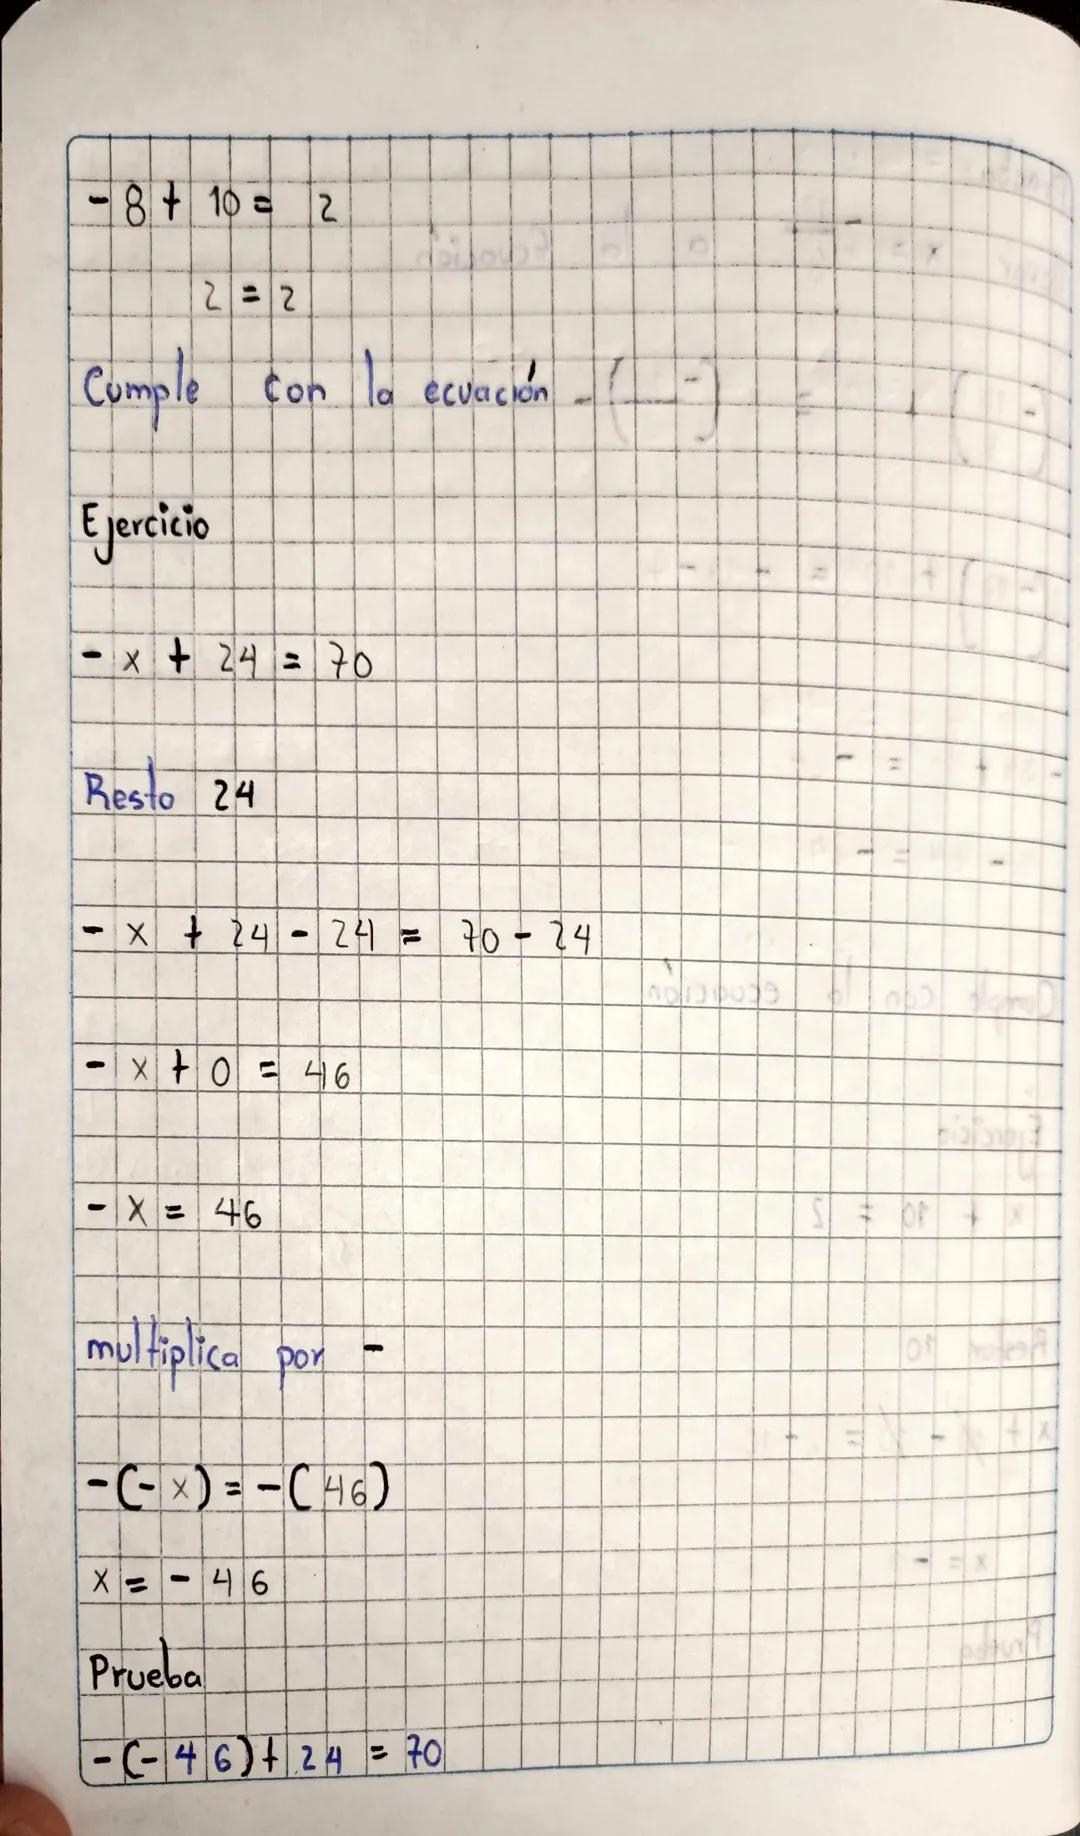 - 8 + 10 = 2
2 = 2
Cumple con la ecuación
Ejercicio
- x + 24 = 70
Resto 24
- x + 24 - 24 = 70 - 24
- x + 0 = 46
- x = 46
multiplica por -
- (- x) = - (46)
x = - 46
Prueba
- (- 46) + 24 = 70